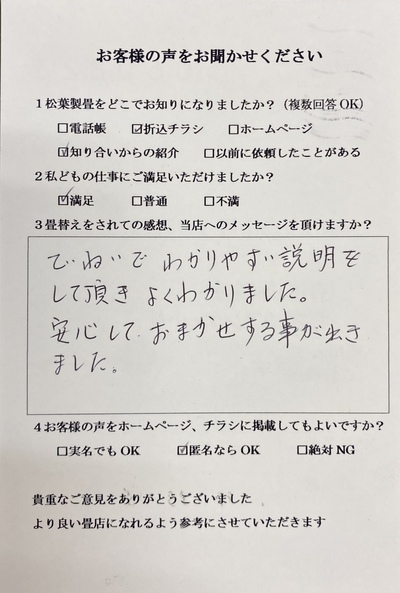 お客様の声をお聞かせください
１松葉製畳をどこでお知りになりましたか？（複数回答OK）
□電話帳 ☑折込チラシ □ホームページ
☑知り合いからの紹介 □以前に依頼したことがある
２私どもの仕事にご満足いただけましたか？
☑満足 □普通 □不満
３畳替えをされての感想、当店へのメッセージを頂けますか？
でいねいで わかりやすい説明を
して頂き よくわかりました。
安心して おまかせする事が出き
ました。
４お客様の声をホームページ、チラシに掲載してもよいですか？
□実名でもOK ☑匿名ならOK □絶対NG
貴重なご意見をありがとうございました
より良い畳店になれるよう参考にさせていただきます